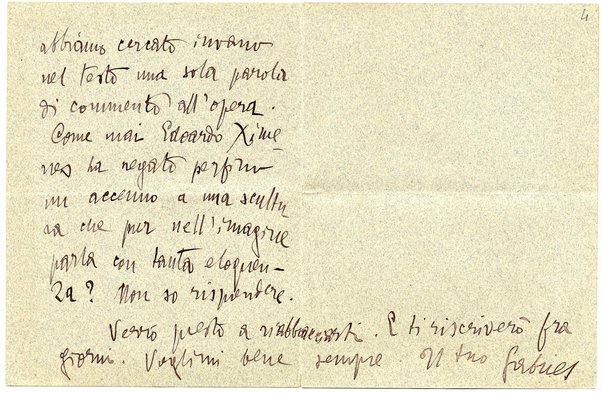 4
abbiamo cercato invano
nel testo una sola parola
di commento all'opera.
Come mai Edoardo Xime-
nes ha negato perfino
un accenno a una scultu
ra che pur nell'imagine
parla con tanta eloquen-
za? Non so rispondere.
Verrò presto a riabbracciarti. E ti riscriverò fra
giorni. Voglimi bene sempre Il tuo Gabriel